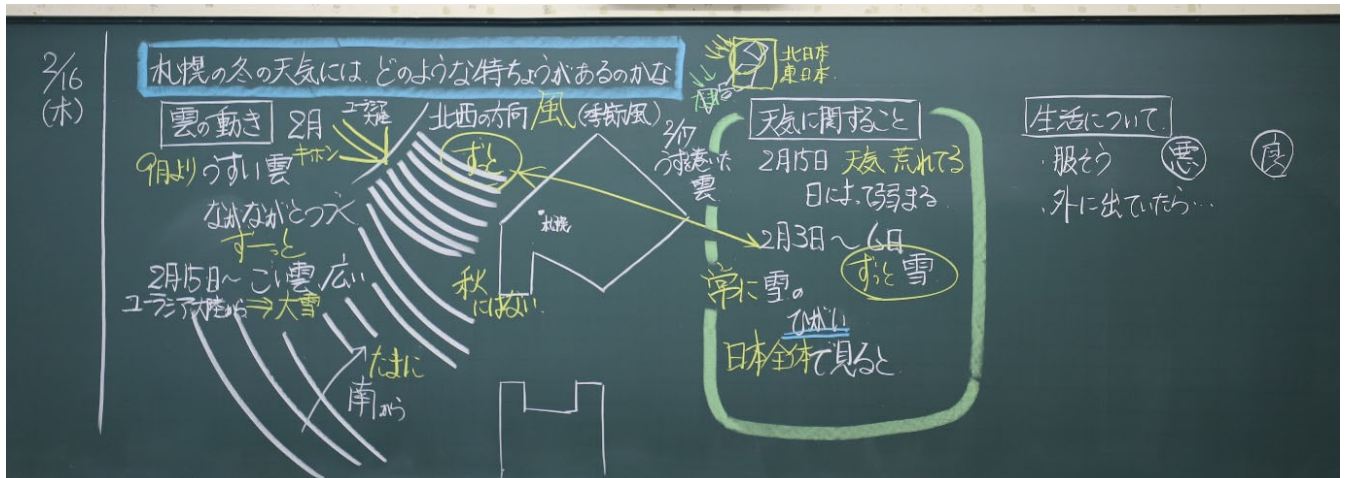 2/16
(木)
札幌の冬の天気には、どのような特ちょうがあるのかな
北日本
東日本
雲の動き
2月
ユーラシア大陸
キホン
9月よりうすい雲
なかながとつづく
ずーっと
2月15日~こい雲、広い
ユーラシア大陸から⇒大雪
たまに
南から
北西の方向 風 (季節風)
ずっと
札幌
秋にはない
2/17
うず巻いた
雲
天気に関すること
2月15日 天気、荒れてる
日によって弱まる
2月3日~6日
ずっと雪
常に雪の
ひがい
日本全体で見ると
生活について
・服そう 悪 良
・外に出ていたら…